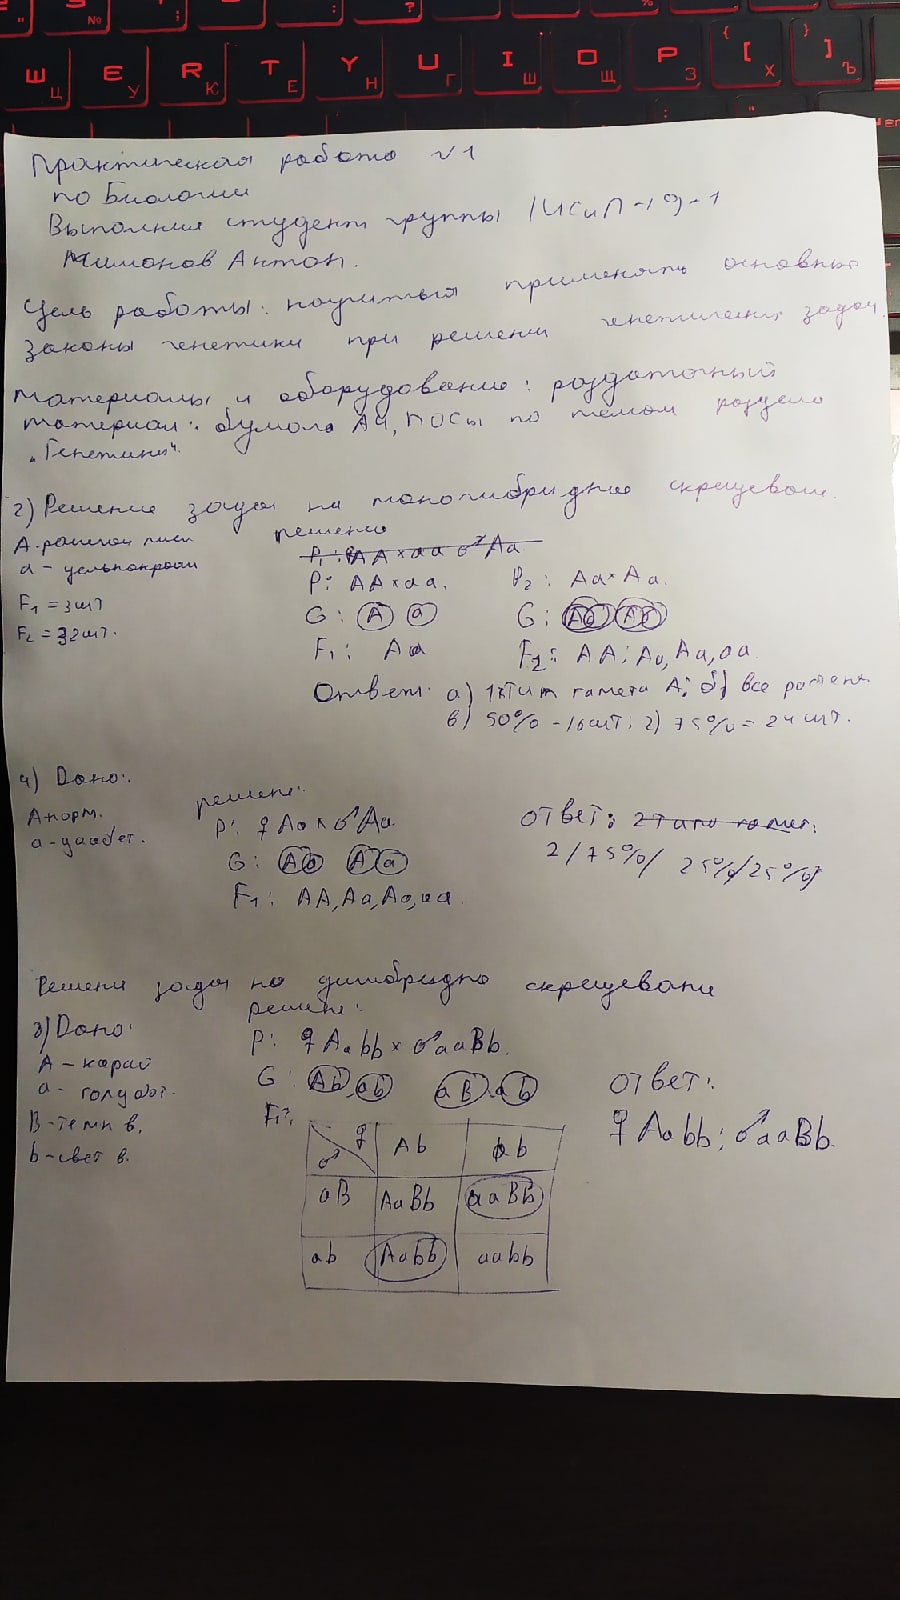 Ш Ц
E У
R К
T Е
Y Н
U Г
I Ш
O Щ
P З
{ [ Х
} ] Ъ
Практическая работа №1
по Биологии
Выполнил студент группы 1ИСиП-19-1
Антон.
Цель работы: научиться применять основные
законы генетики при решении генетических задач.
Материалы и оборудование: раздаточный
материал: бумага А4, по темам раздела
"Генетики".
2) Решение задач на моногибридное скрещивание.
A-
a-
F₁ = 3шт
F₂ = 32шт.
решение
P₁: AA × aa ♂Aa
P: AA × aa.
G: A a
F₁: Aa
P₂: Aa × Aa.
G: Aa Aa
F₂: AA; Aa, Aa, aa
Ответ: а) 1 тип гамета A; б) все
в) 50% - 16шт; г) 75% = 24 шт.
4) Дано:
A-норм.
a-диабет.
решение:
P: ♀ Aa × ♂ Aa
G: A a A a
F₁: AA, Aa, Aa, aa
ответ: 2
2/75%/ 25%/25%
Решение задач на дигибридно скрещивание
3) Дано:
A – карий
a – голубой.
B-темн в.
b-свет в.
решение:
P: ♀ Aabb × ♂ aaBb.
G: Ab, ab aB, ab
F₁:
♀ ♂ Ab ab
aB AaBb aaBb
ab Aabb aabb
ответ:
♀ Aabb; ♂ aaBb